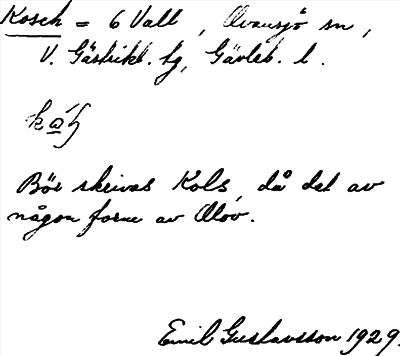 Kosch = 6 Vall, Ovansjö sn,
V. Gästrikl. tg, Gävleb. l.
Bör skrivas Kols, då det av
någon form av Olov.
Emil Gustavsson 1929.